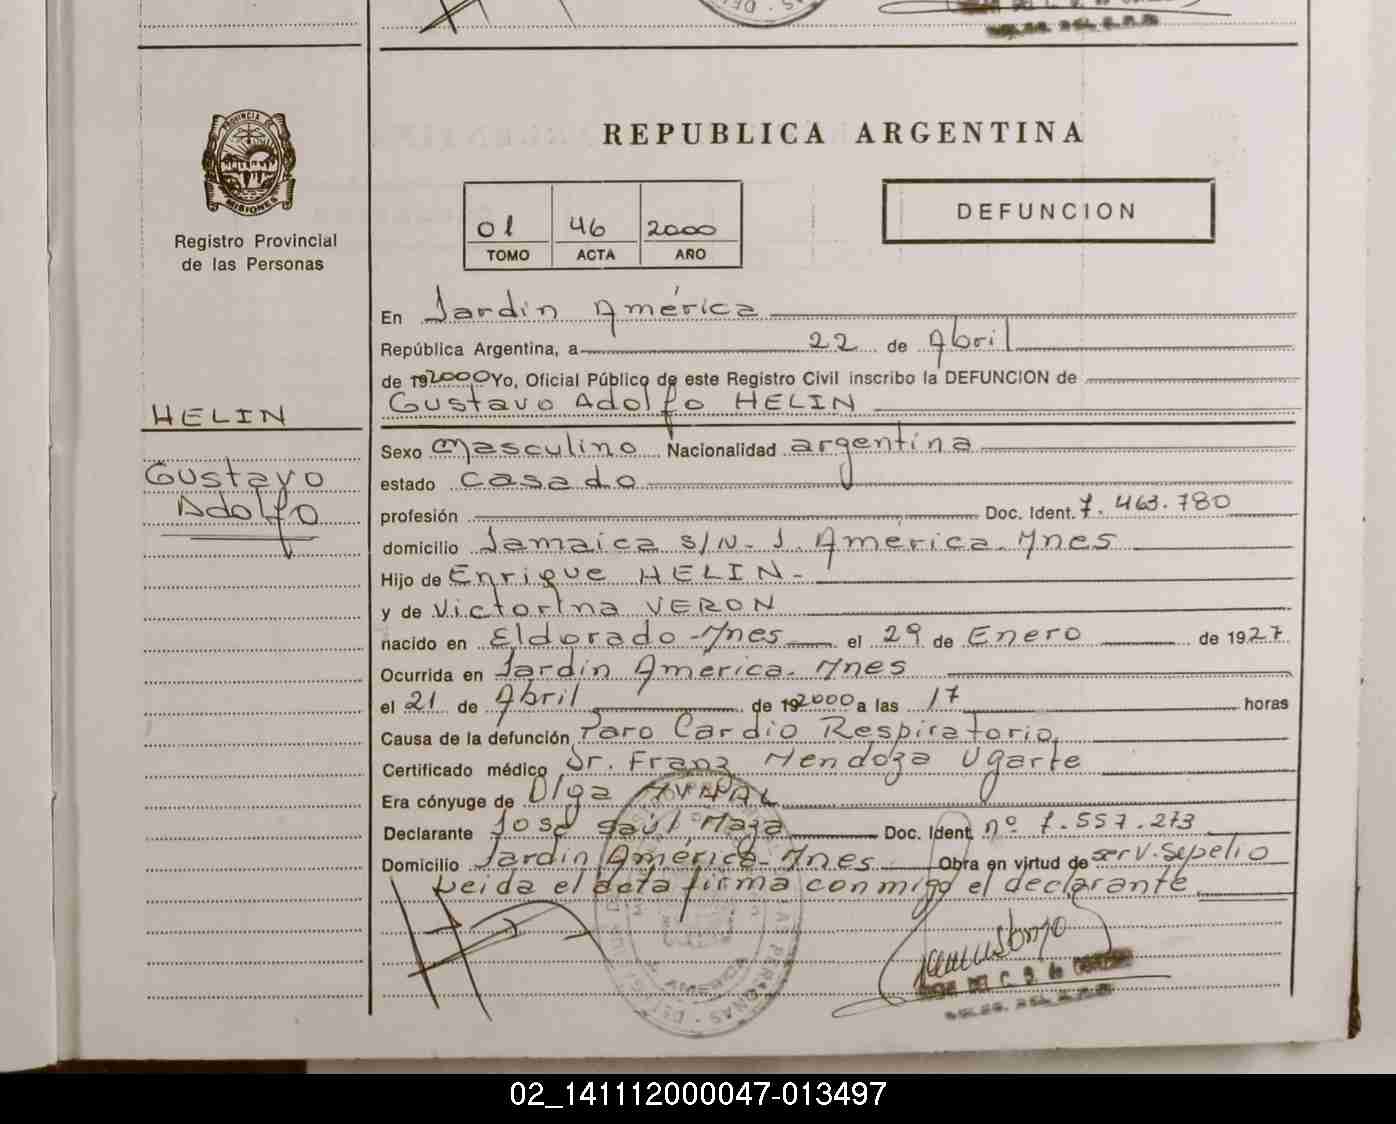 REPUBLICA ARGENTINA
PROVINCIA DE
MISIONES
Registro Provincial
de las Personas
01 46 2000
TOMO ACTA AÑO
DEFUNCION
En Jardin América
República Argentina, a 22 de Abril
de 192000 Yo, Oficial Público de este Registro Civil inscribo la DEFUNCION de
Gustavo Adolfo HELIN
HELIN
Gustavo
Adolfo
Sexo masculino Nacionalidad argentina
estado casado
profesión Doc. Ident. 7.463.780
domicilio Jamaica s/N- J. América. Mnes
Hijo de Enrique HELIN-
y de Victorina VERON
nacido en Eldorado-Mnes el 29 de Enero de 1927
Ocurrida en Jardín América. Mnes
el 21 de Abril de 192000 a las 17 horas
Causa de la defunción Paro Cardio Respiratorio
Certificado médico Dr. Franz Mendoza Ugarte
Era cónyuge de Olga
Declarante José Saúl Maza Doc. Ident. nº 7.557.273
Domicilio Jardin América-Mnes Obra en virtud de serv. sepelio
Leida el acta firma conmigo el declarante
02_141112000047-013497